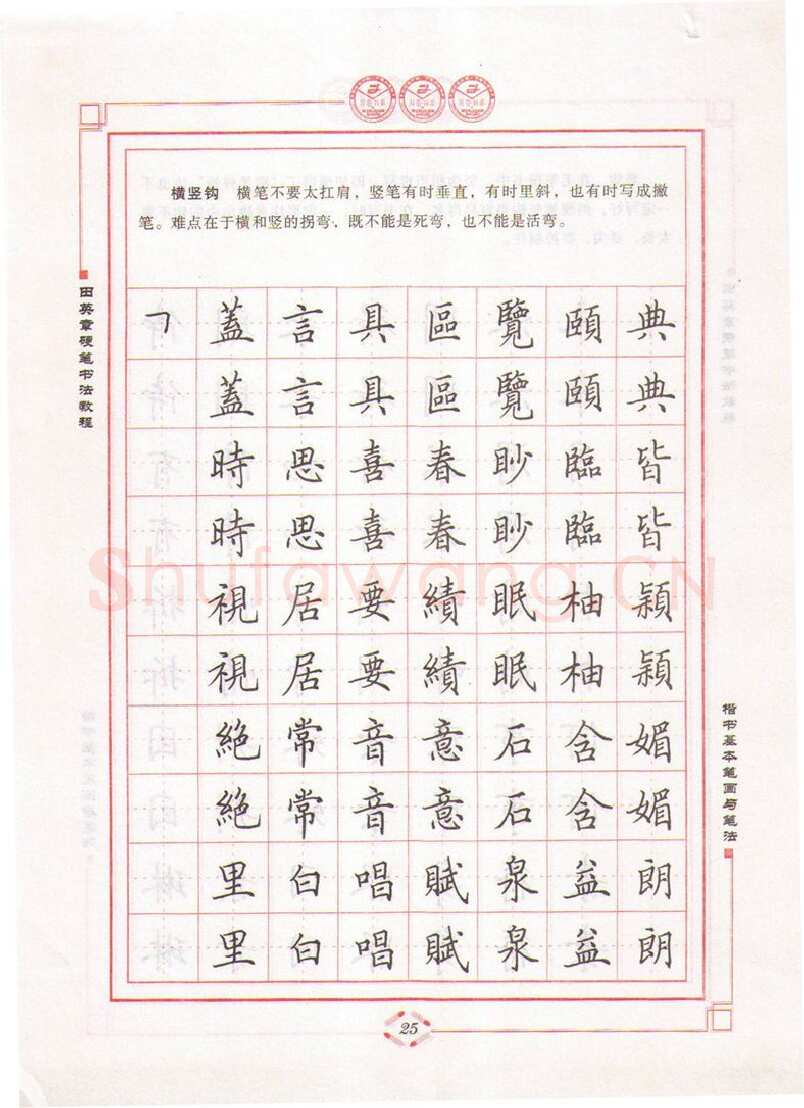 横竖钩 横笔不要太扛肩，竖笔有时垂直，有时里斜，也有时写成撇
笔。难点在于横和竖的拐弯，既不能是死弯，也不能是活弯。
田英章硬笔书法教程
㇕ 蓋 言 具 區 覽 頤 典
蓋 言 具 區 覽 頤 典
時 思 喜 春 眇 臨 皆
時 思 喜 春 眇 臨 皆
視 居 要 績 眠 柚 穎
視 居 要 績 眠 柚 穎
絕 常 音 意 石 含 媚
絕 常 音 意 石 含 媚
里 白 唱 賦 泉 益 朗
里 白 唱 賦 泉 益 朗
楷书基本笔画与笔法
25
Shufawang.CN